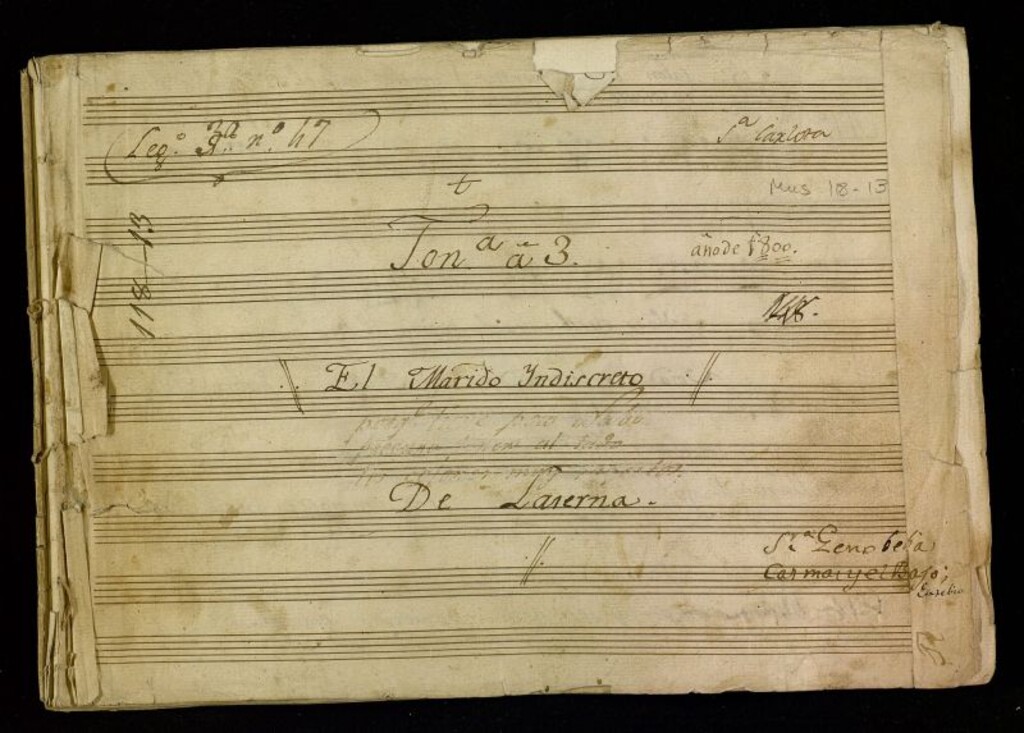 Leg.º 3.º n.º 47
S.ª Carlota
t
Mus 18-13
118-13
Ton.ª a 3.
año de 1800.
El Marido Yndiscreto
De Laserna.
S.ra Zenobebia
Carmas y el Bajo;
Eusebio